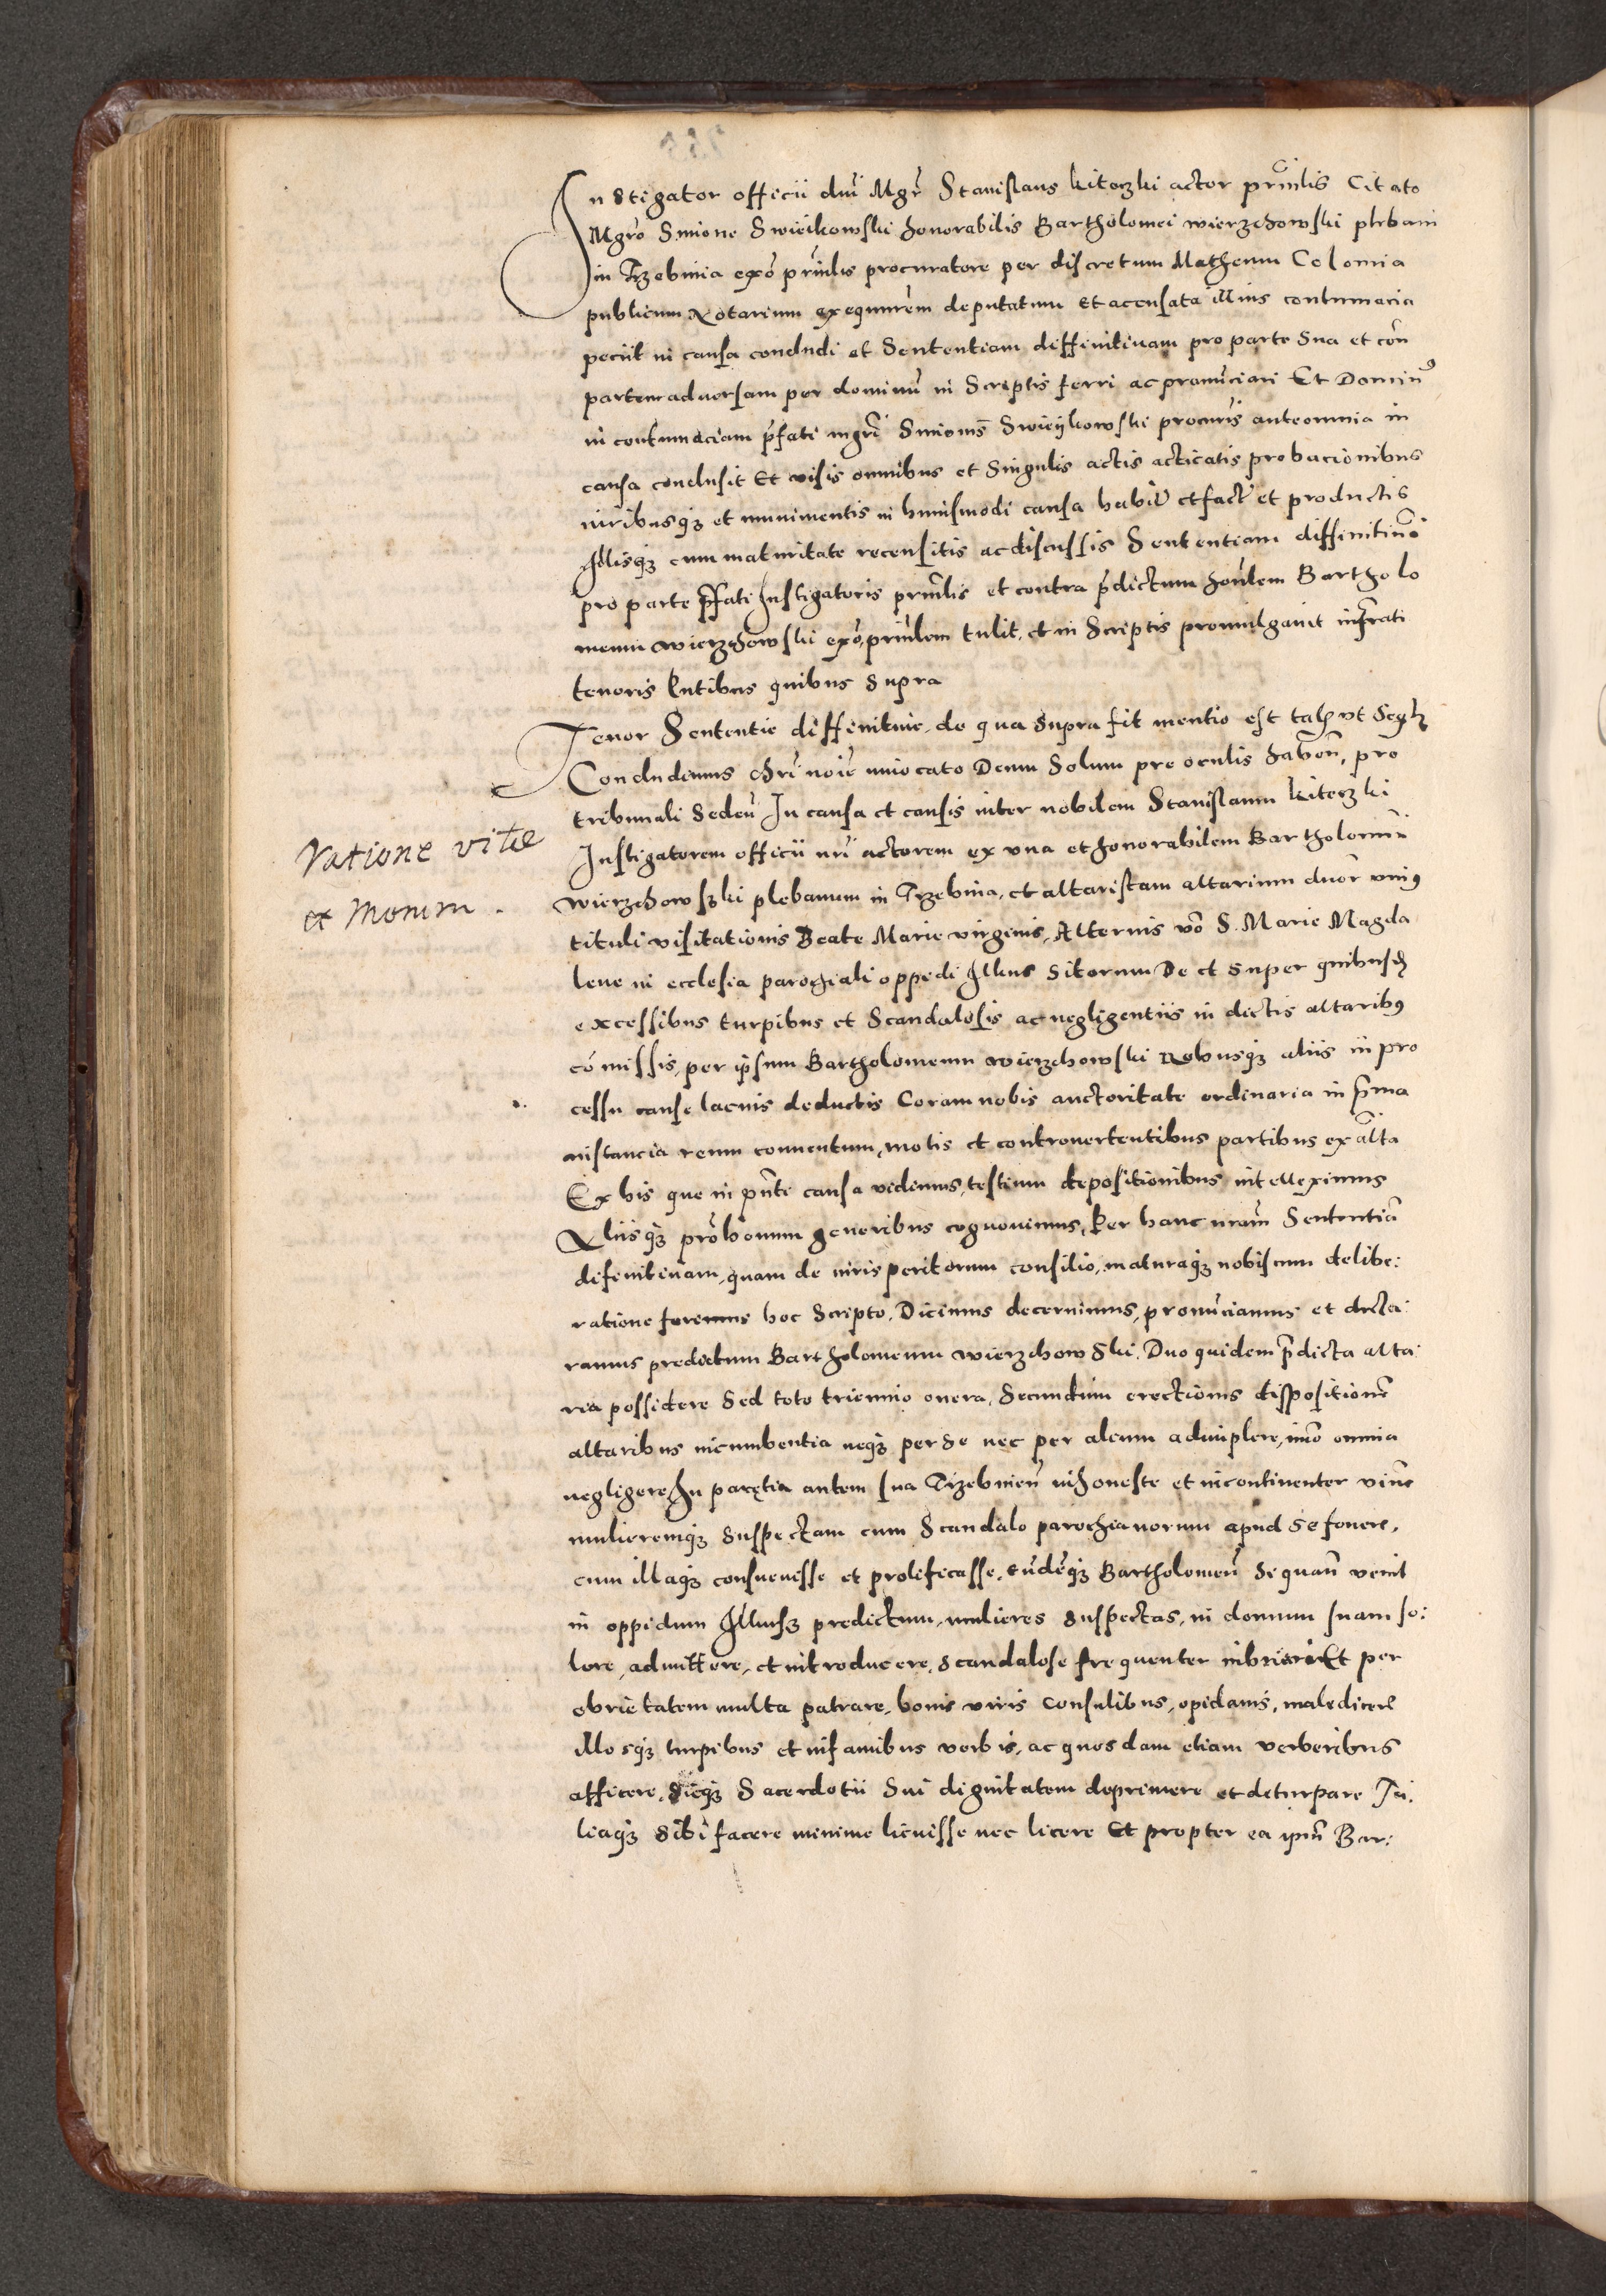 Instigator officii dni Mgr Stanislaus kitoczki actor prinlis Citato
Mgro Simone Swieikowski honorabilis Bartholomei wierzchowski plebani
in Trzebinia exo prinlis procuratore per discretum Matheum Colomia
publicum Notarium exequutem deputatum Et accusata illius contumacia
peciit in causa concludi et Sententiam diffinitivam pro parte Sua et con
partem adversam per dominu in Scriptis ferri ac pronuciari Et Domin9
in contumaciam pfati mgri Simonis Swieijkowski procuris ante omnia in
causa conclusit Et visis omnibus et Singulis actis acticatis probacionibus
iuribusqz et munimentis in huiusmodi causa habit et fact et productis
Illisqz cum maturitate recensitis ac discussis Sententiam diffinitiua
pro parte pfati Instigatoris prinlis et contra pdictum honlem Bartholo
meum wierzchowski exo, prinlem tulit, et in Scriptis promulgavit infrati
tenoris Sntibus quibus Supra
Tenor Sententie diffinitiue, de qua Supra fit mentio est talis vt Seqtz
Concludimus chri noie inuocato Deum Solum pre oculis haben, pro
tribunali Seden In causa et causis inter nobilem Stanislaum kiteczki
Instigatorem officii nri actorem ex vna et honorabilem Bartholomeu
wierzchowski plebanum in Trzebinia, et altaristam altarium duor vni9
tituli visitationis Beate Marie virginis, Alternis vo S. Marie Magda
lene in ecclesia parochiali oppidi Illius Sitorum De et Super quibusd
excessibus turpibus et Scandalosis ac negligentiis in dictis altarib9
comissis, per ipsum Bartholomeum wierzchowski Rebusqz aliis in pro
cessu cause lacius deductis Coram nobis auctoritate ordinaria in pma
instancia reum conuentum, motis et controuertentibus partibus ex alta
Ex his que in pnti causa vidimus, testium depositionibus intelleximus
Aliisqz probonum generibus cognouimus, Per hanc nram Sententia
difinitiuam, quam de iuris peritorum consilio, maturaqz nobiscum delibe:
ratione ferimus hoc Scripto. Dicimus decernimus, pronuciamus et decla:
ramus predictum Bartholomeum wierzchowski. Duo quidem pdicta alta:
ria possidere Sed toto triennio onera, Secundum erectionis dispositione
altaribus incumbentia neqz per Se nec per alium adimplere, imo omnia
negligere In parochia autem sua Trzebinien inhoneste et incontinenter viue
mulieremqz Suspectam cum Scandalo parochianorum apud Se fouere,
cum illaqz consuevisse et prolificasse, eundeqz Bartholomeu Se quan venit
in oppidum Illkusz predictum, mulieres Suspectas, in domum suam so:
lere, admittere, et introducere, Scandalose frequenter inbriari Et per
ebrietatem multa patrare, bonis viris Consulibus, opidanis, maledicere
illosqz turpibus et infamibus verbis, ac quosdam etiam verberibus
afficere, Sicqz Sacerdotii Sui dignitatem deprimere et deturpare Ta:
liaqz Sibi facere minime licuisse nec licere Et propter ea ipm Bar:
Ratione vitae
et Morum.